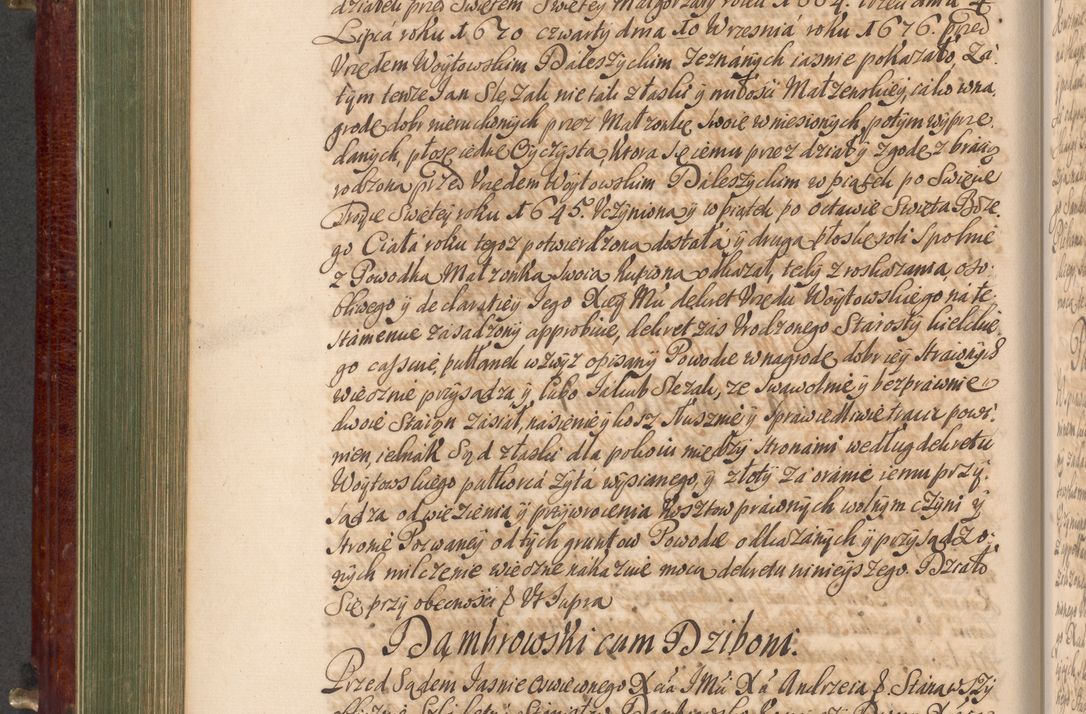 dziateli przed Swiętem Swiętey Małgorzaty roku 1664. trzeci dnia 4
Lipca roku 1670 czwarty dnia 10 Wrzesnia roku 1676. przed
Vrzędem Woytowskim Daleszyckim zeznanych iasnie pokazało Za
tym tenze Jan Slezak nie tak z łaski y miłości Małzenskiey, iako wna
grodę dobr nieruchomych przez Małzonkę swoię wniesionych, potym wyprze
danych, płosę iednę Oyczystą, ktora się iemu przez działy y zgodę z bracią
rodzoną przed Vrzędem Woytowskim Daleszyckim w piątek po Swięcie
Troyce Swiętey roku 1645. Vczyniona y w piątek po octawie Swięta Boze
go Ciała roku tegoz potwierdzona dostała y drugą płoskę roli spolnie
z Powodką Małzonką swoią kupioną odkazał, tedy z roskazania oso
bliwego y declaratiey Jego Xcey Mci dekret Vrzędu Woytowskiego na te
stamencie zasadzony approbuie, dekret zas Vrodzonego Starosty kieleckie
go cassuie, pułłanek wzwyz opisany Powodce w nagrodę dobr iey strawnych
wiecznie przysądza y lubo Jakub Slezak, ze swawolnie y bezprawnie
dwoie Staion zasiał, nasienie y kosz słusznie y sprawiedliwie tracić powi
nien, iednak Sąd z łaski dla pokoiu między stronami według dekretu
Woytowskiego pułkorca zyta wysianego, y złoty za oranie iemu przy
sądza od więzienia y przywrocenia kosztow prawnych wolnym czyni y
stronie Pozwaney od tych gruntow Powodce odkazanych y przysądzo
nych milczenie wieczne nakazuie mocą dekretu ninieyszego. Działo
się przy obecności &c Vt supra
Dąmbrowski cum Dziboni.
Przed Sądem Jasnie Oswieconego Xcia JMci Xa Andrzeia &c Stanąwszy